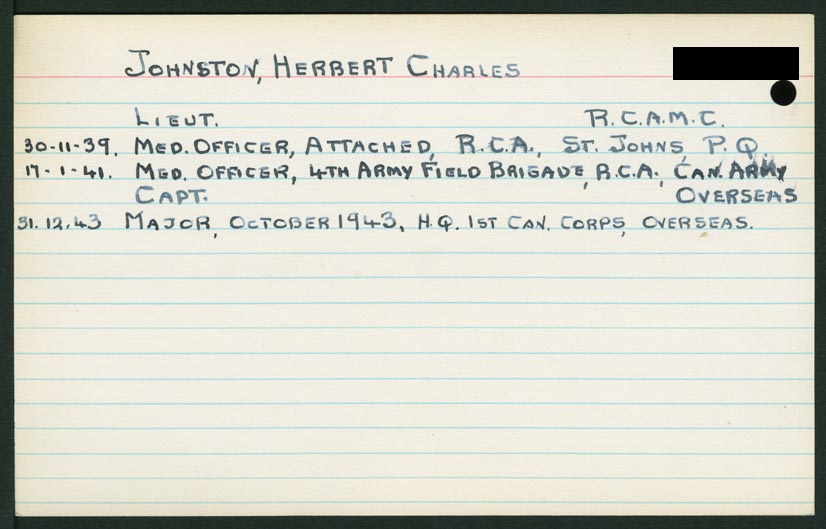 JOHNSTON, HERBERT CHARLES
LIEUT. R.C.A.M.C.
30-11-39. MED. OFFICER, ATTACHED, R.C.A., ST. JOHNS, P.Q.
17-1-41. MED. OFFICER, 4TH ARMY FIELD BRIGADE, R.C.A., CAN. ARMY
CAPT. OVERSEAS
31.12.43 MAJOR, OCTOBER 1943, H.Q. 1ST CAN. CORPS, OVERSEAS.